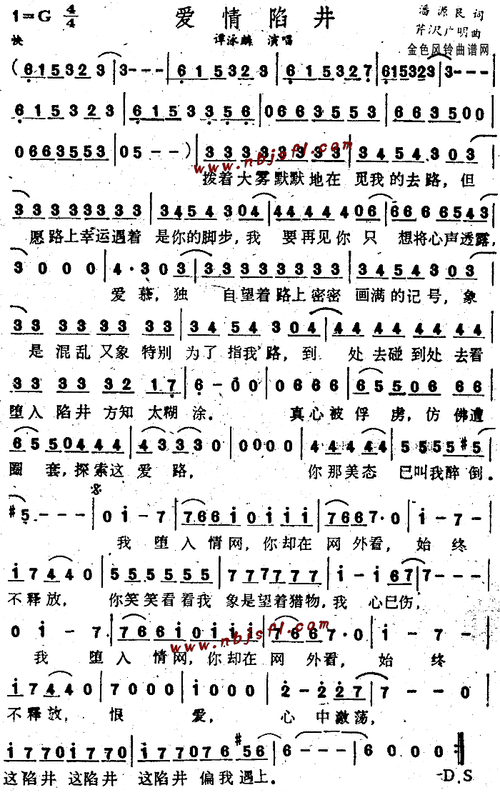 1=G 4/4 爱情陷井 潘源良 词
快 谭泳麟 演唱 芹沢广明 曲
金色风铃曲谱网
(615323 | 3--- | 615323 615323 | 615323 | 3---
615323 | 6153 3356 | 0663553 | 663500
0663553 | 05--) | 33333333 | 345430 3
www.nbjsfl.com
拨着大雾默默地在 觅我的去路，但
33333333 | 345430 4 | 4444406 | 6665 43
愿路上幸运遇着 是你的脚步，我 要再见你只 想将心声透露，
3000 | 4·303 | 33333333 | 345430 3
爱慕，独 自望着路上密密 画满的记号，象
33333333 | 345430 4 | 44444444
是混乱又象特别 为了指我路，到 处去碰到处去看
33333217 | 6-00 | 0666 | 655066 66
堕入陷井方知太糊涂。 真心被俘虏，仿佛遭
6550444 | 43330 | 0000 | 44444 | 5555#5
圈套，探索这爱路， 你那美态 已叫我醉倒。
#5--- | 01-7 | 76610111 | 7667·0 | 1-7-
我堕入情网，你却在网外看，始终
17440 | 555555 | 777777 | 1·167 | 7---
不释放，你笑笑看看我 象是望着猎物，我心已伤，
01-7 | 76610111 | 7667·0 | 1-7-
www.nbjsfl.com
我堕入情网，你却在网外看，始终
17440 | 7000 | 1000 | 2-227 | 7--0
不释放，恨 爱， 心中激荡，
17701770 | 17706#56 | 6--- | 6000 :||
这陷井这陷井 这陷井偏我遇上。 D.S